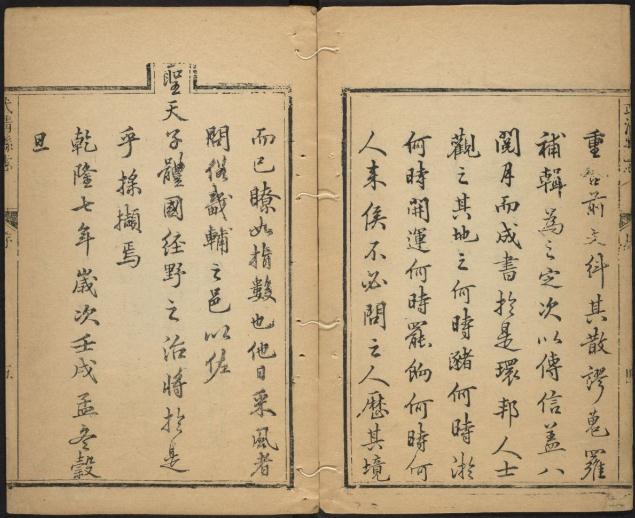 重加前文糾其散謬蒐羅
補輯為之定次以傳信蓋八
閱月而成書於是環邦人士
觀之其地之何時豬何時淤
何時開運何時罷餉何時何
人來侯不必問之人歷其境
而已瞭如指數也他日采風者
問俗畿輔之邑以佐
聖天子體國經野之治將於是
乎採擷焉
乾隆七年歲次壬戌孟冬穀
旦
武清縣志
序